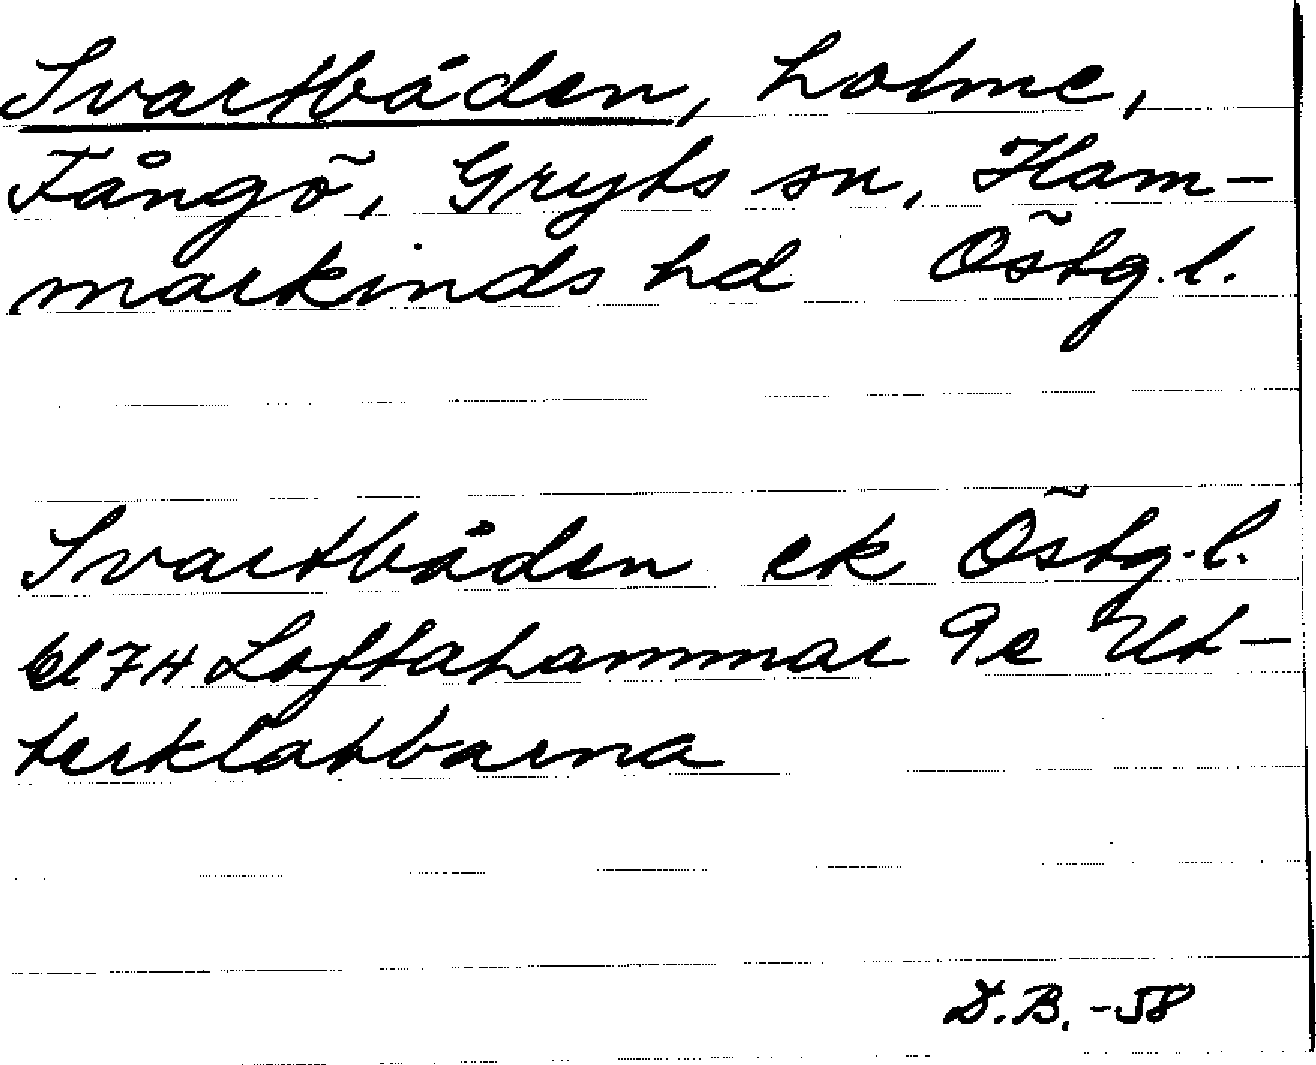 Svartbåden, holme,
Fångö, Gryts sn, Ham-
markinds hd Östg.l.
Svartbåden ek Östg.l.
bl 7H Loftahammar 9e Ut-
terklabbarna
D.B. -58